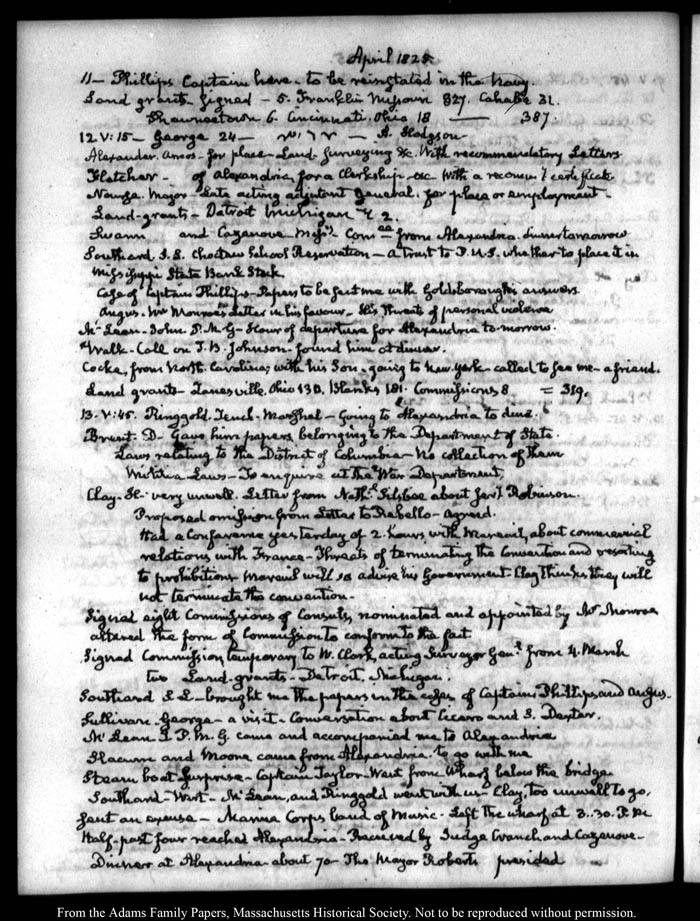 April 1825.
11— Phillips Captain here - to be reinstated in the Navy.
Land grants Signed - 5. Franklin Missouri 327. Cahaba 31.
Shawneetown 6. Cincinnati, Ohio 18 — 387.
12. V: 15— George 24— — A. Hodgson
Alexander. Amos - for place - Land-Surveying &c. With recommendatory Letters.
Fletcher - of Alexandria, for a Clerkship &c With a recom. certificate
Nourse Major - Late acting adjutant General, for place or employment.
Land-grants - Detroit Michigan 2.
Swann and Cazenove Mess.rs Com.ee from Alexandria. dinner tomorrow
Southard S. L. Choctaw School Reservation - a Trust to P. U.S. whether to place it in
Mississippi State Bank Stock
Case of Captain Phillips - Papers to be sent me with Goldsborough's answers.
Angus. Mr Monroe's Letter in his favour - His threats of personal violence
Mc.Lean - John P. M. G - Hour of departure for Alexandria to-morrow.
Walk - Call on J. B. Johnson - found him at dinner.
Cocke, from North-Carolina, with his Son - going to New-York - called to see me - a friend.
Land grants - Zanesville, Ohio 130, Blanks 181. Commissions 8 = 319.
13. V: 45. Ringgold. Tench - Marshal - Going to Alexandria to dine.
Brent. D - Gave him papers, belonging to the Department of State.
Laws relating to the District of Columbia - No collection of them
Militia Laws - To enquire at the War Department,
Clay - H. very unwell. Letter from Nath.l Silsbee about Robinson.
Proposed omission from Letter to Rebello - agreed.
Had a Conference yesterday of 2 hours with Mareuil, about commercial
relations with France - Threats of terminating the Convention and resorting
to prohibitions Mareuil will so advise his Government - Clay thinks they will
not terminate the convention -
Signed eight Commissions of Consuls, nominated and appointed by Mr Monroe
altered the form of Commission to conform to the fact
Signed Commission temporary to W. Clark, acting Surveyor Gen.l from 4. March
two Land-grants - Detroit, Michigan.
Southard S L - brought me the papers in the cases of Captains Phillips and Angus.
Sullivan. George - a visit - Conversation about Cicero and S. Dexter.
Mc.Lean J. P. M. G. came and accompanied me to Alexandria
Slacum and Moore came from Alexandria to go with me
Steam boat Surprise - Captain Taylor - Went from Wharf below the bridge
Southard - Wirt - McLean, and Ringgold went with us - Clay, too unwell to go,
sent an excuse - Marine Corps band of Music - Left the wharf at 3..30. P.M
Half-past four reached Alexandria - Received by Judge Cranch and Cazenove -
Dinner at Alexandria - about 70 - The Mayor Roberts presided
From the Adams Family Papers, Massachusetts Historical Society. Not to be reproduced without permission.